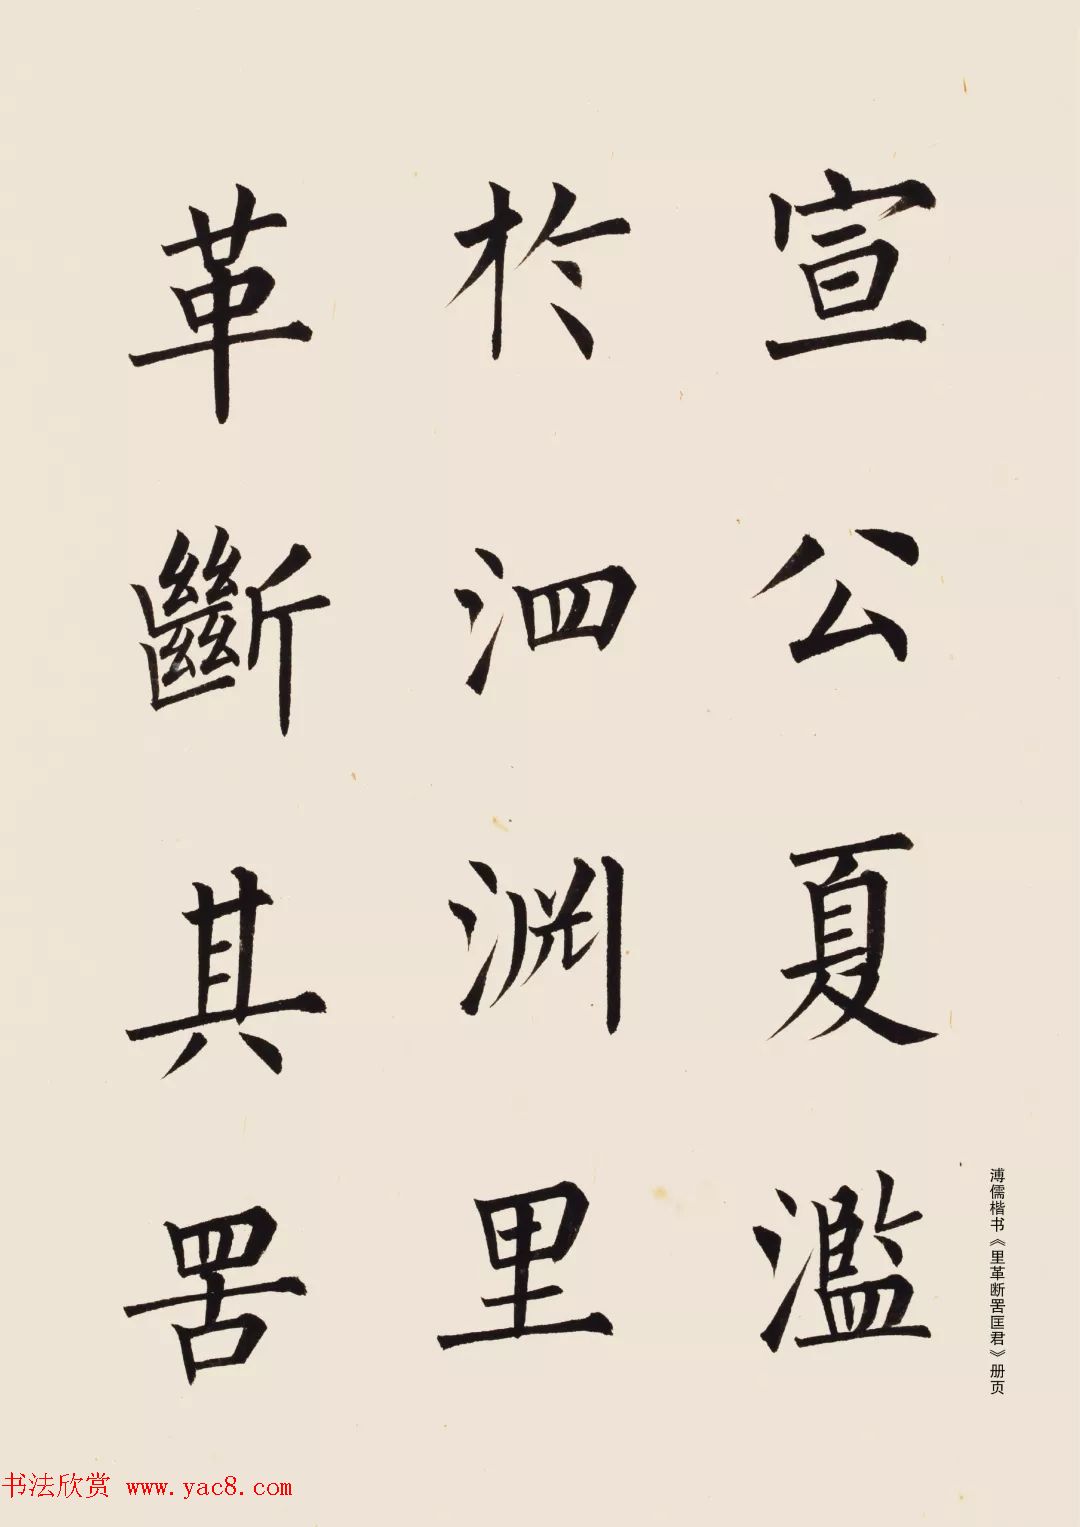 宣公夏濫
於泗淵里
革斷其罟
溥儒楷书《里革断罟匡君》册页
书法欣赏 www.yac8.com